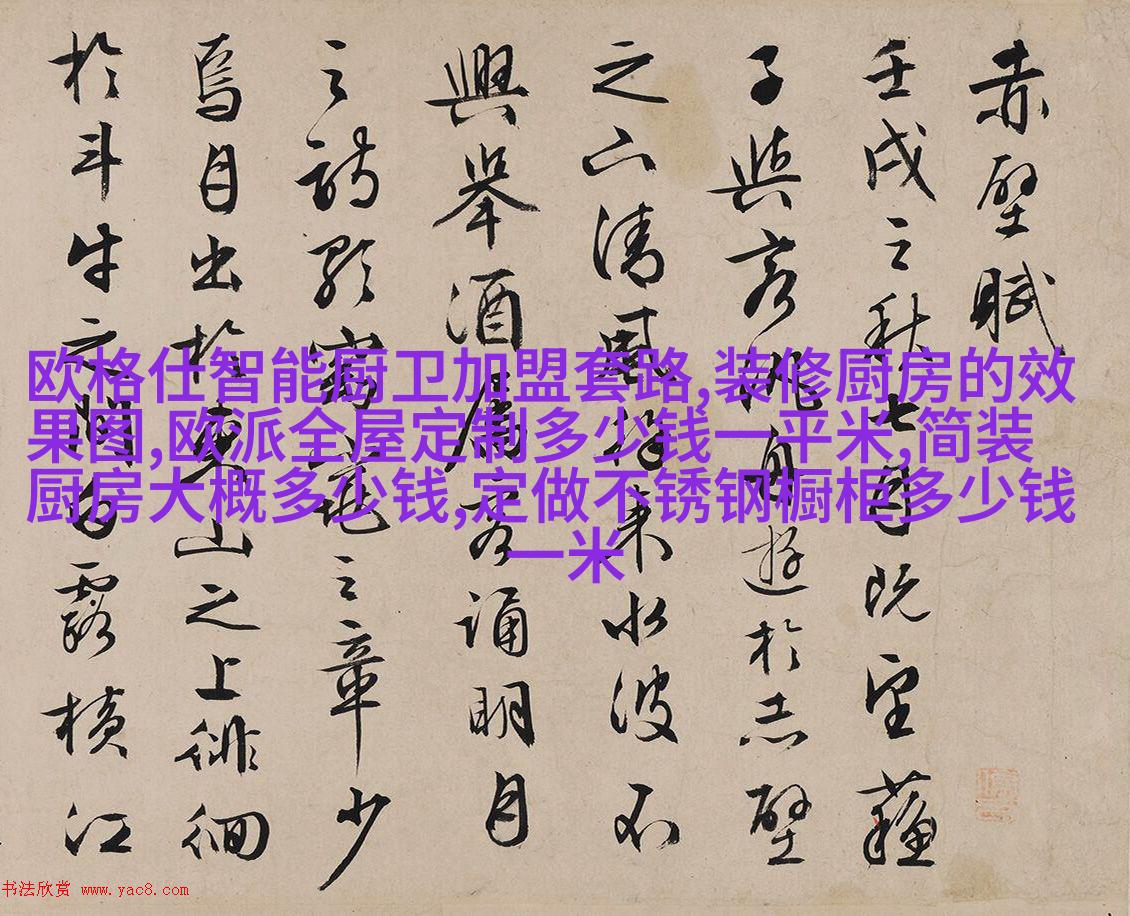 赤壁賦
壬戌之秋七月既望蘇
子與客泛舟遊於赤壁
之下清風徐来水波不
興舉酒屬客誦明月
之詩歌窈窕之章少
焉月出於東山之上徘徊
於斗牛之間白露橫江
欧格仕智能厨卫加盟套路,装修厨房的效
果图,欧派全屋定制多少钱一平米,简装
厨房大概多少钱,定做不锈钢橱柜多少钱
一米
书法欣赏 www.yac8.com